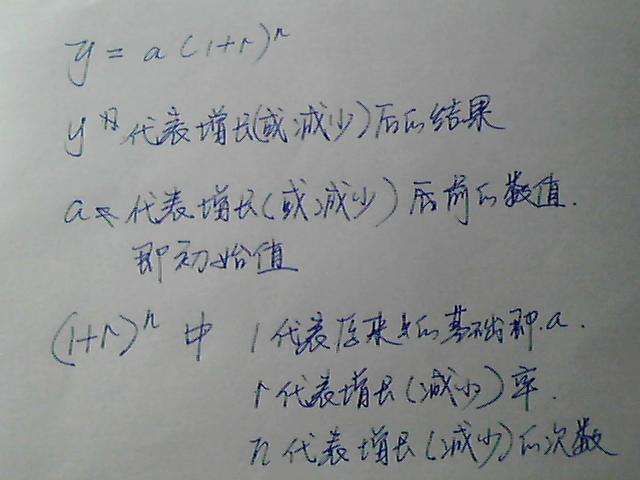 y = a (1+r)ⁿ
y 代表增长(或减少)后的结果
a 代表增长(或减少)前的数值.
即初始值
(1+r)ⁿ 中 1代表原来的基础即a.
r代表增长(减少)率.
n代表增长(减少)的次数